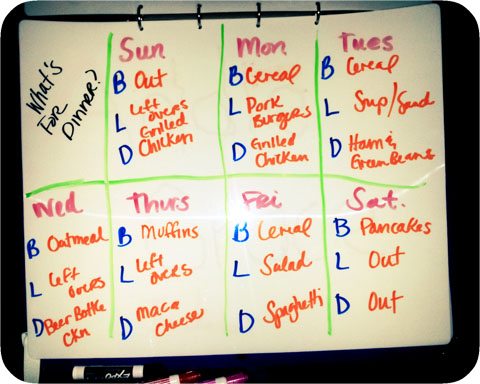 What's
For
Dinner?
Sun
B Out
L Leftovers
Grilled
D Chicken
Mon
B Cereal
L Pork
Burgers
D Grilled
Chicken
Tues
B Cereal
L Soup/Sand
D Ham &
Green Beans
Wed
B Oatmeal
L Left
overs
D Beer Bottle
Ckn
Thurs
B Muffins
L Left
overs
D Maca
Cheese
Fri
B Cereal
L Salad
D Spaghetti
Sat.
B Pancakes
L Out
D Out
EXPO